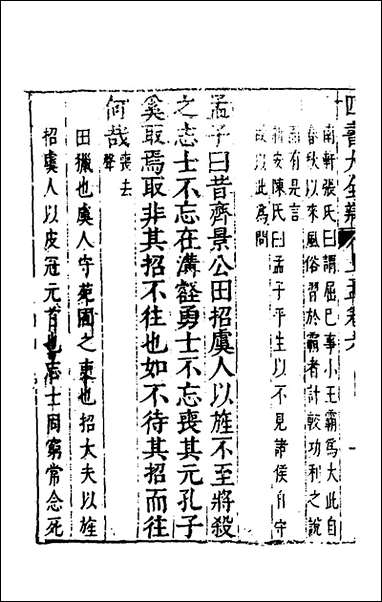 四書大全
南軒張氏曰謂屈已事小王霸為大此自
春秋以來風俗習於霸者計較功利之說
而有是言
陳氏曰孟子平生以不見諸侯自守
故以此為問
孟子曰昔齊景公田招虞人以旌不至將殺
之志士不忘在溝壑勇士不忘喪其元孔子
奚取焉取非其招不往也如不待其招而往
何哉喪去聲
田獵也虞人守苑囿之吏也招大夫以旌
招虞人以皮冠元首也志士固窮常念死